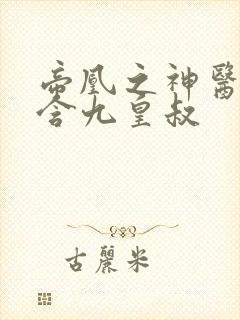 帝凰之神醫
含九皇叔
古麗米